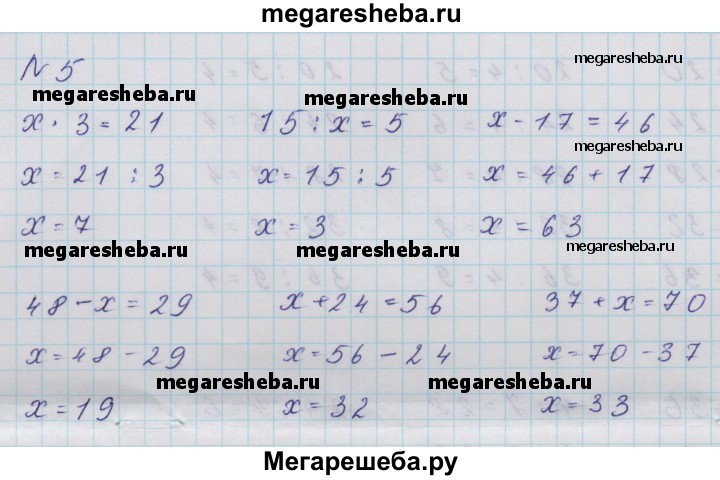 megaresheba.ru
№ 5
megaresheba.ru
megaresheba.ru megaresheba.ru
x · 3 = 21 15 : x = 5 x - 17 = 46
megaresheba.ru
x = 21 : 3 x = 15 : 5 x = 46 + 17
x = 7 x = 3 x = 63
megaresheba.ru megaresheba.ru megaresheba.ru
48 - x = 29 x + 24 = 56 37 + x = 70
x = 48 - 29 x = 56 - 24 x = 70 - 37
megaresheba.ru megaresheba.ru
x = 19 x = 32 x = 33
Мегарешеба.ру